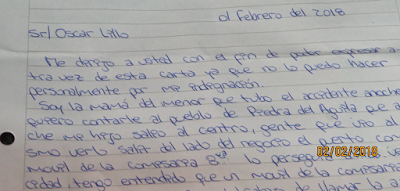 01 Febrero del 2018
Sr/ Oscar Lillo
Me dirijo a usted con el fin de poder expresar a
tra vez de esta carta ya que no lo puedo hacer
personalmente por mi indignación.
Soy la mamá del menor que tubo el accidente anoche
quiero contarte al pueblo de Piedra del Aguila que a
che mi hijo salio al centro, gente que vio al
verlo salir del lado del negocio el punto con
movil de la comisaria 6ta persegui ve
cidad, tengo entendido que un movil de la comisaria
02/02/2018